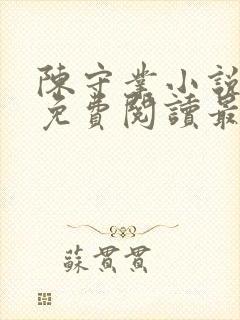 陳守業小說
免費閱讀最
蘇貫貫